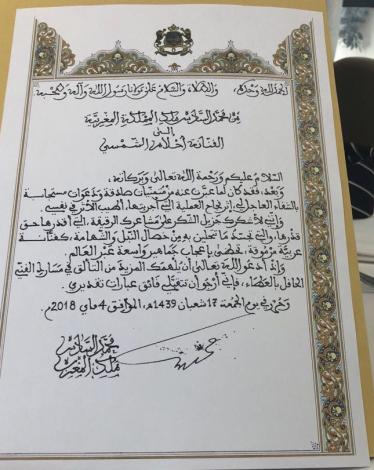 الحمد لله وحده، والصلاة والسلام على مولانا رسول الله وآله وصحبه
من محمد السادس ملك المملكة المغربية
إلى
الفنانة أحلام الشمسي
السلام عليكم ورحمة الله تعالى وبركاته،
وبعد، فقد كان لما عبرت عنه من متمنيات صادقة ودعوات مستجابة
بالشفاء العاجل لي، إثر نجاح العملية التي أجريتها، الطيب الأثر في نفسي.
وإني لأشكرك جزيل الشكر على مشاعرك الرقيقة، التي أقدرها حق
قدرها، والتي تجسد ما تتحلين به من خصال النبل والشهامة، كفنانة
عربية مرموقة، تحظى بإعجاب جماهير واسعة عبر العالم.
وإذ أدعو الله تعالى أن يلهمك المزيد من التألق في مسارك الفني
الحافل بالعطاء، فإني أرجو أن تتقبلي فائق عبارات تقديري.
وحرر في يوم الجمعة 17 شعبان 1439هـ، الموافق 4 ماي 2018م.
محمد السادس
ملك المغرب